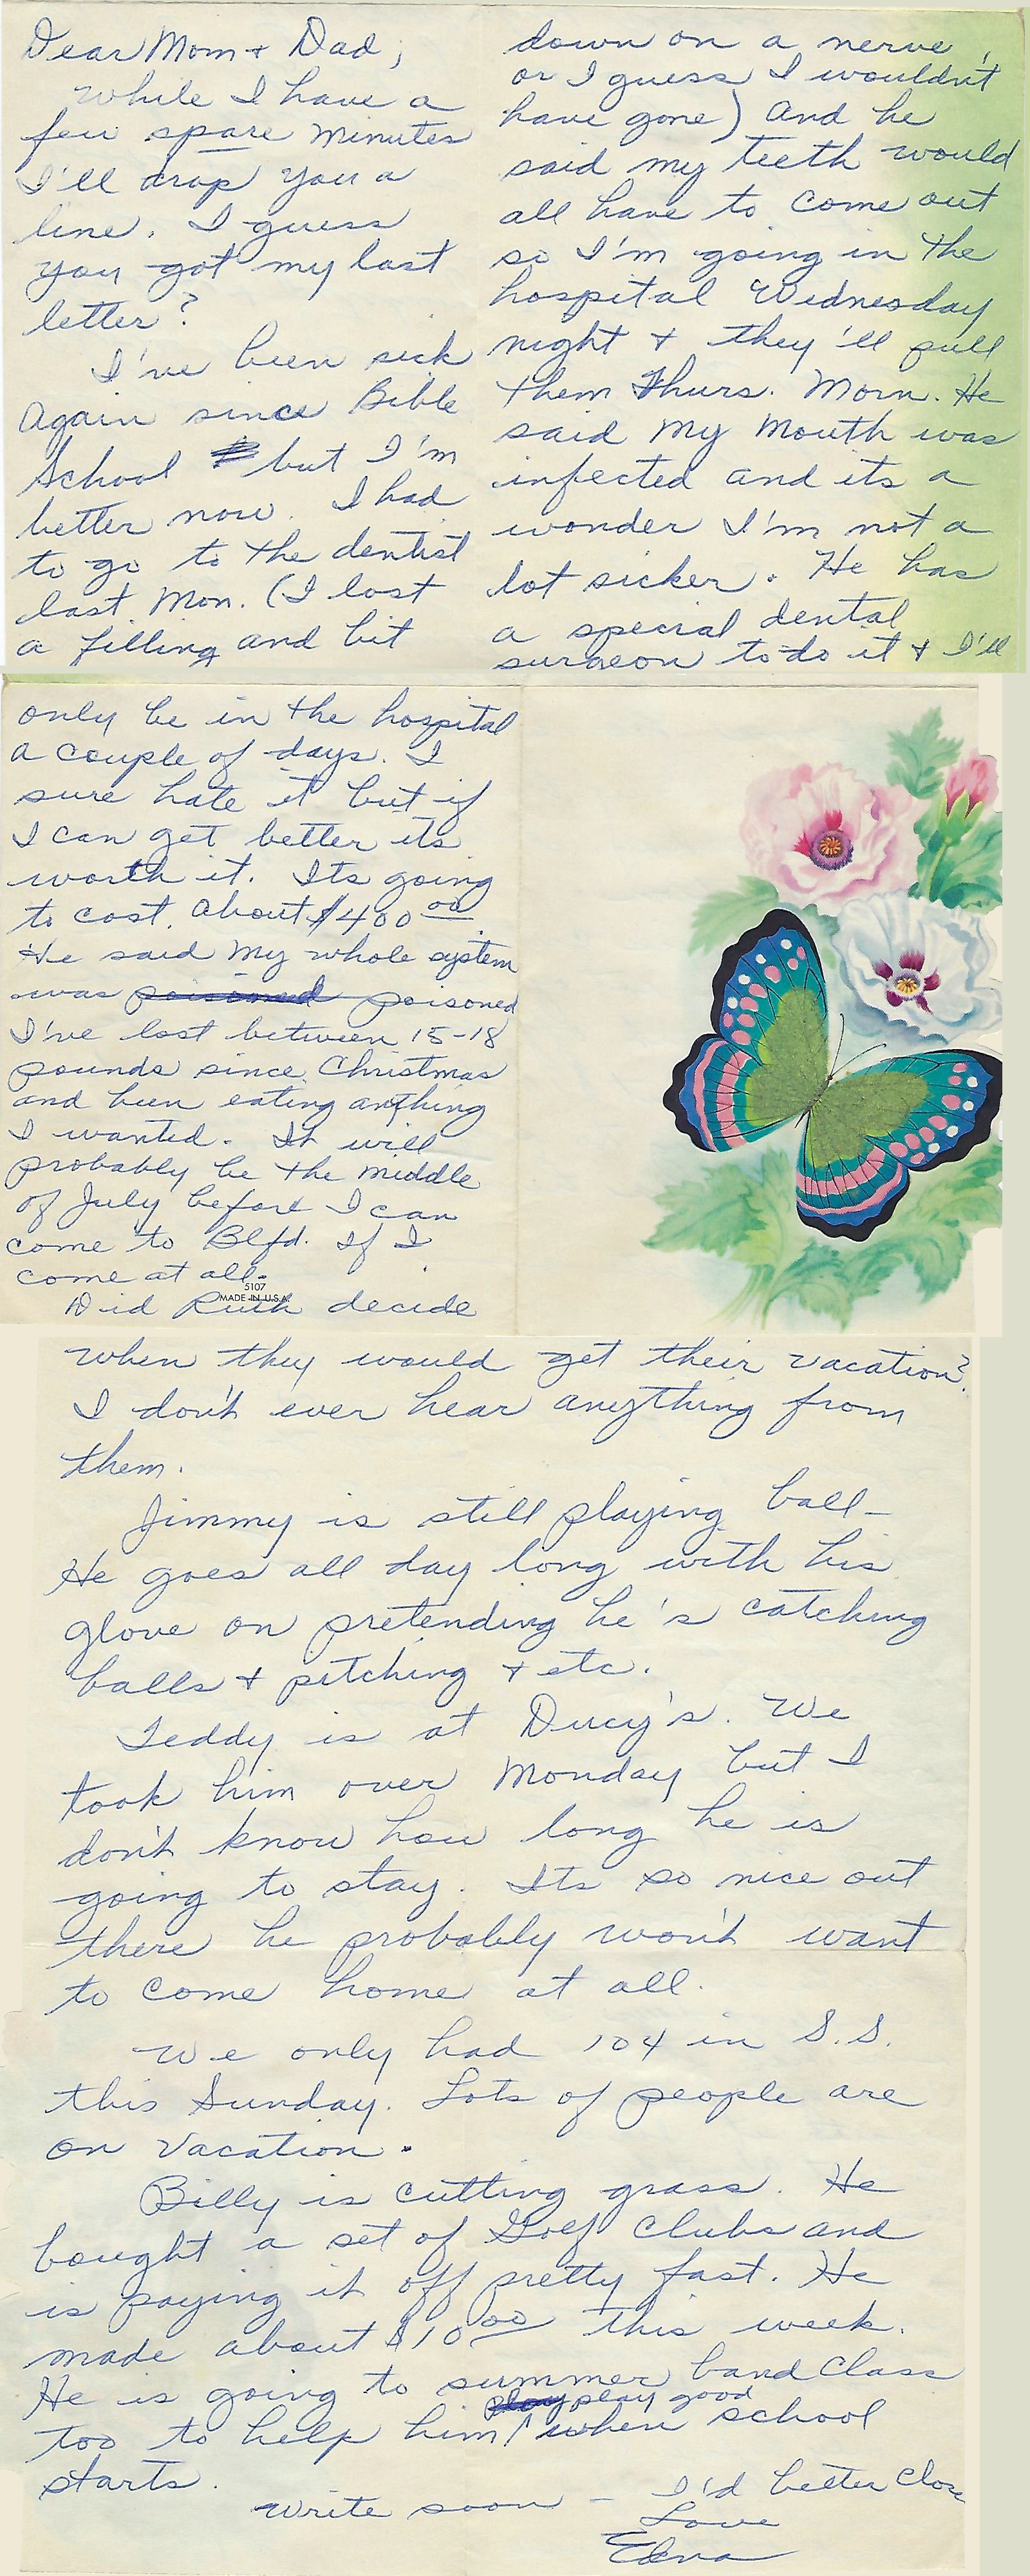 Dear Mom + Dad;
While I have a
few spare minutes
I'll drop you a
line. I guess
you got my last
letter?
I've been sick
again since Bible
School but I'm
better now. I had
to go to the dentist
last Mon. (I lost
a filling and bit
down on a nerve,
or I guess I wouldn't
have gone) And he
said my teeth would
all have to come out
so I'm going in the
hospital Wednesday
night + they'll pull
them Thurs. Morn. He
said my mouth was
infected and its a
wonder I'm not a
lot sicker. He has
a special dental
surgeon to do it + I'll
only be in the hospital
a couple of days. I
sure hate it but if
I can get better its
worth it. Its going
to cost about $400 00
He said my whole system
was poisoned poisoned
I've lost between 15-18
pounds since Christmas
and been eating anything
I wanted. It will
probably be the middle
of July before I can
come to Blfd. If I
come at all.
5107
MADE IN U.S.A.
Did Ruth decide
when they would get their vacation?
I don't ever hear anything from
them.
Jimmy is still playing ball-
He goes all day long with his
glove on pretending he's catching
balls + pitching + etc.
Teddy is at Ducy's. We
took him over Monday but I
don't know how long he is
going to stay. Its so nice out
there he probably won't want
to come home at all.
We only had 104 in S.S.
this Sunday. Lots of people are
on vacation.
Billy is cutting grass. He
bought a set of Golf Clubs and
is paying it off pretty fast. He
made about $10 00 this week.
He is going to summer band class
play play good
too to help him / when school
starts.
Write soon - I'd better close
Love
Edna